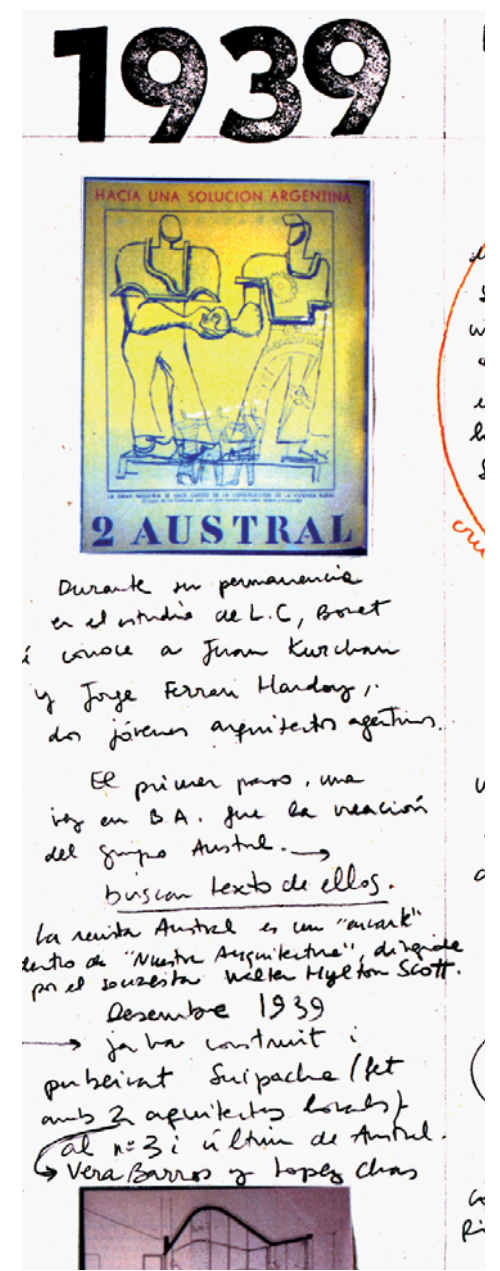 1939
HACIA UNA SOLUCION ARGENTINA
LA GRAN INDUSTRIA SE HACE CARGO DE LA CONSTRUCCION DE LA VIVIENDA RURAL
2 AUSTRAL
Durante su permanencia
en el estudio de L.C, Bonet
conoce a Juan Kurchan
y Jorge Ferrari Hardoy,
dos jóvenes arquitectos agentinos.
El primer paso, una
vez en B.A. fue la creación
del grupo Austral. →
buscar texto de ellos.
La revista Austral es un "encart"
dentro de "Nuestra Arquitectura", dirigida
por el socialista Walter Hylton Scott.
Desembre 1939
→ ja ha construit i
publicat Suipacha (fet
amb 2 aquitectes locals)
al nº3 i últim de Austral.
Vera Barros y Lopez Chas